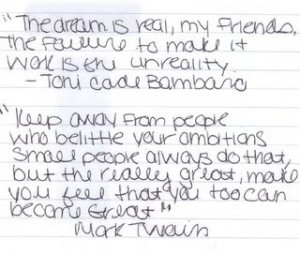 "The dream is real, my friends.
The failure to make it
work is the unreality.
- Toni Cade Bambara
"Keep away from people
who belittle your ambitions
Small people always do that,
but the really great, make
you feel that you too can
become Great"
Mark Twain